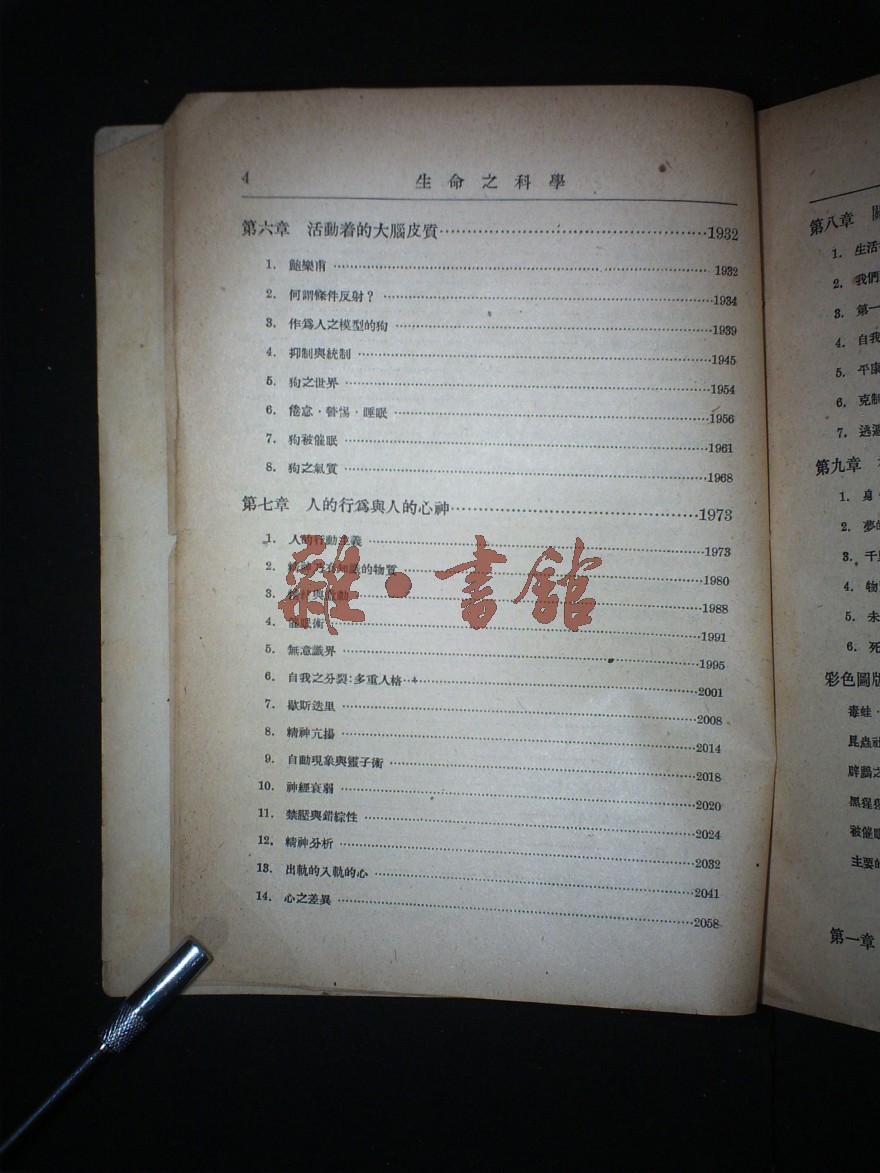 4 生命之科學
第六章 活動着的大腦皮質 1932
1. 鮑樂甫 1932
2. 何謂條件反射？ 1934
3. 作爲人之模型的狗 1939
4. 抑制與統制 1945
5. 狗之世界 1954
6. 倦怠·警惕·睡眠 1956
7. 狗被催眠 1961
8. 狗之氣質 1968
第七章 人的行爲與人的心神 1973
1. 人的行動主義 1973
2. 精神乃有知識的物質 1980
3. 與激動 1988
4. 催眠術 1991
5. 無意識界 1995
6. 自我之分裂：多重人格 2001
7. 歇斯迭里 2008
8. 精神亢揚 2014
9. 自動現象與靈子術 2018
10. 神經衰弱 2020
11. 禁壓與錯綜性 2024
12. 精神分析 2032
13. 出軌的入軌的心 2041
14. 心之差異 2058
雜·書館
第八章
1. 生活
2. 我們
3. 第一
4. 自我
5. 平康
6. 克制
7. 逃避
第九章
1. 身
2. 夢
3. 千里
4. 物
5. 未
6. 死
彩色圖版
毒蛙
昆蟲社
黑猩猩
被催眠
主要的
第一章